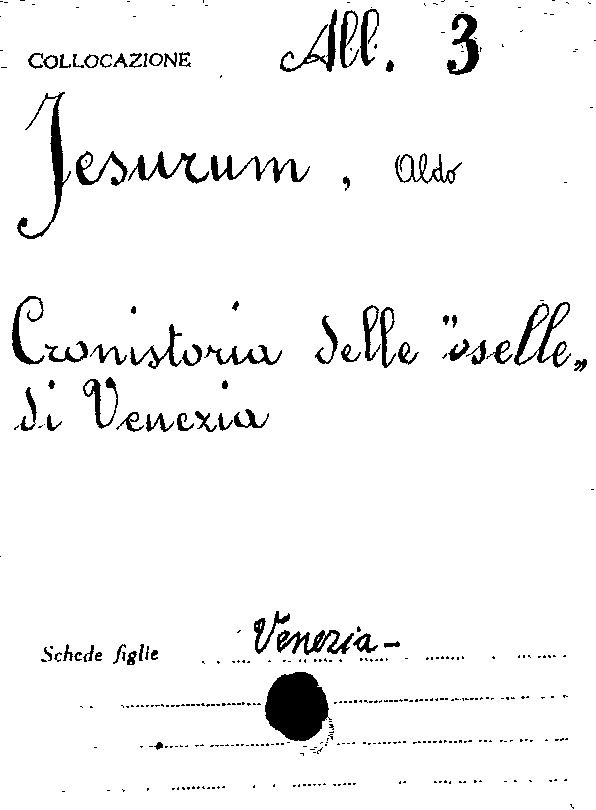 COLLOCAZIONE All. 3
Jesurum, Aldo
Cronistoria delle "oselle„
di Venezia
Schede figlie Venezia-